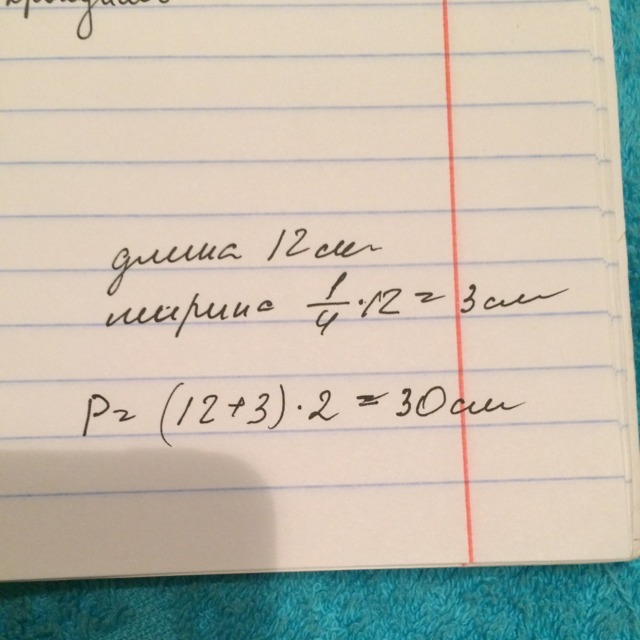 длина 12 см
ширина 1/4 · 12 = 3 см
P = (12+3) · 2 = 30 см